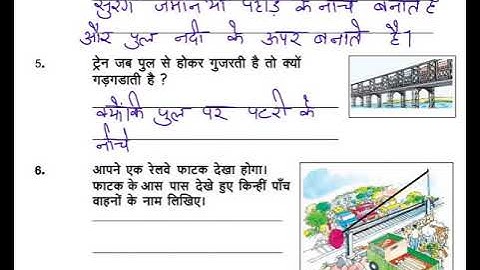 सुरंग जमीन या पहाड़ के नीचे बनाते है
और पुल नदी के ऊपर बनाते है।
5. ट्रेन जब पुल से होकर गुजरती है तो क्यों
गड़गडाती है ?
क्योंकि पुल पर पटरी के
नीचे
6. आपने एक रेलवे फाटक देखा होगा।
फाटक के आस पास देखे हुए किन्हीं पाँच
वाहनों के नाम लिखिए।